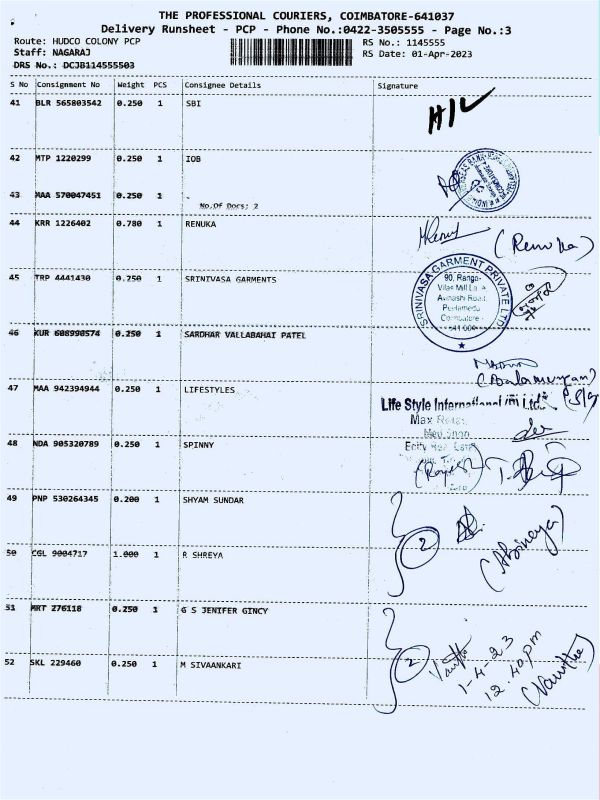 THE PROFESSIONAL COURIERS, COIMBATORE-641037
Delivery Runsheet - PCP - Phone No.:0422-3505555 - Page No.:3
Route: HUDCO COLONY PCP RS No.: 1145555
Staff: NAGARAJ RS Date: 01-Apr-2023
DRS No.: DCJB114555503
S No Consignment No Weight PCS Consignee Details Signature
41 BLR 565803542 0.250 1 SBI
H/L
42 MTP 1220299 0.250 1 IOB
43 MAA 570047451 0.250 1 -
No.Of Docs: 2
44 KRR 1226402 0.780 1 RENUKA
(Renuka)
45 TRP 4441430 0.250 1 SRINIVASA GARMENTS
SRINIVASA GARMENT PRIVATE LTD
90, Ranga
Vilas Mill
Avinashi Road
Peelamedu
Coimbatore -
641 004
46 KUR 608990574 0.250 1 SARDHAR VALLABAHAI PATEL
(Balamurugan)
47 MAA 942394944 0.250 1 LIFESTYLES
Life Style International (P) Ltd.
48 NDA 905320789 0.250 1 SPINNY
(Rajesh)
49 PNP 530264345 0.200 1 SHYAM SUNDAR
2
(Abineya)
50 CGL 9004717 1.000 1 R SHREYA
51 MRT 276118 0.250 1 G S JENIFER GINCY
2
1-4-23
12.40.pm
52 SKL 229460 0.250 1 M SIVAANKARI